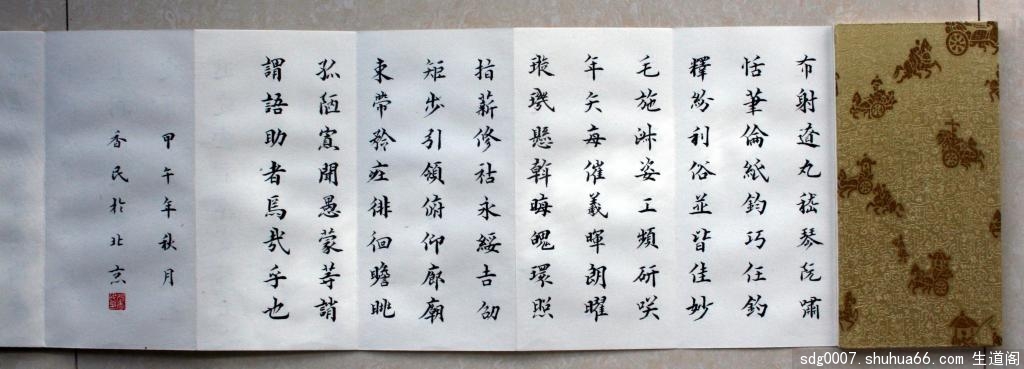 布射遼丸嵇琴阮嘯
恬筆倫紙鈞巧任釣
釋紛利俗並皆佳妙
毛施淑姿工頻研咲
年矢每催羲暉朗曜
璇璣懸斡晦魄環照
指薪修祜永綏吉劭
矩步引領俯仰廊廟
束帶矜庄徘徊瞻眺
孤陋寡聞愚蒙等誚
謂語助者焉哉乎也
甲午年秋月
香民於北京
sdg0007.shuhua66.com 生道阁